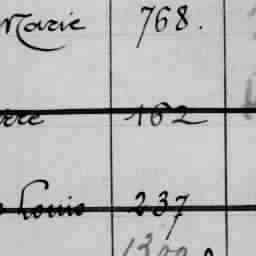 Marie 768.
rre 162
Louis 237